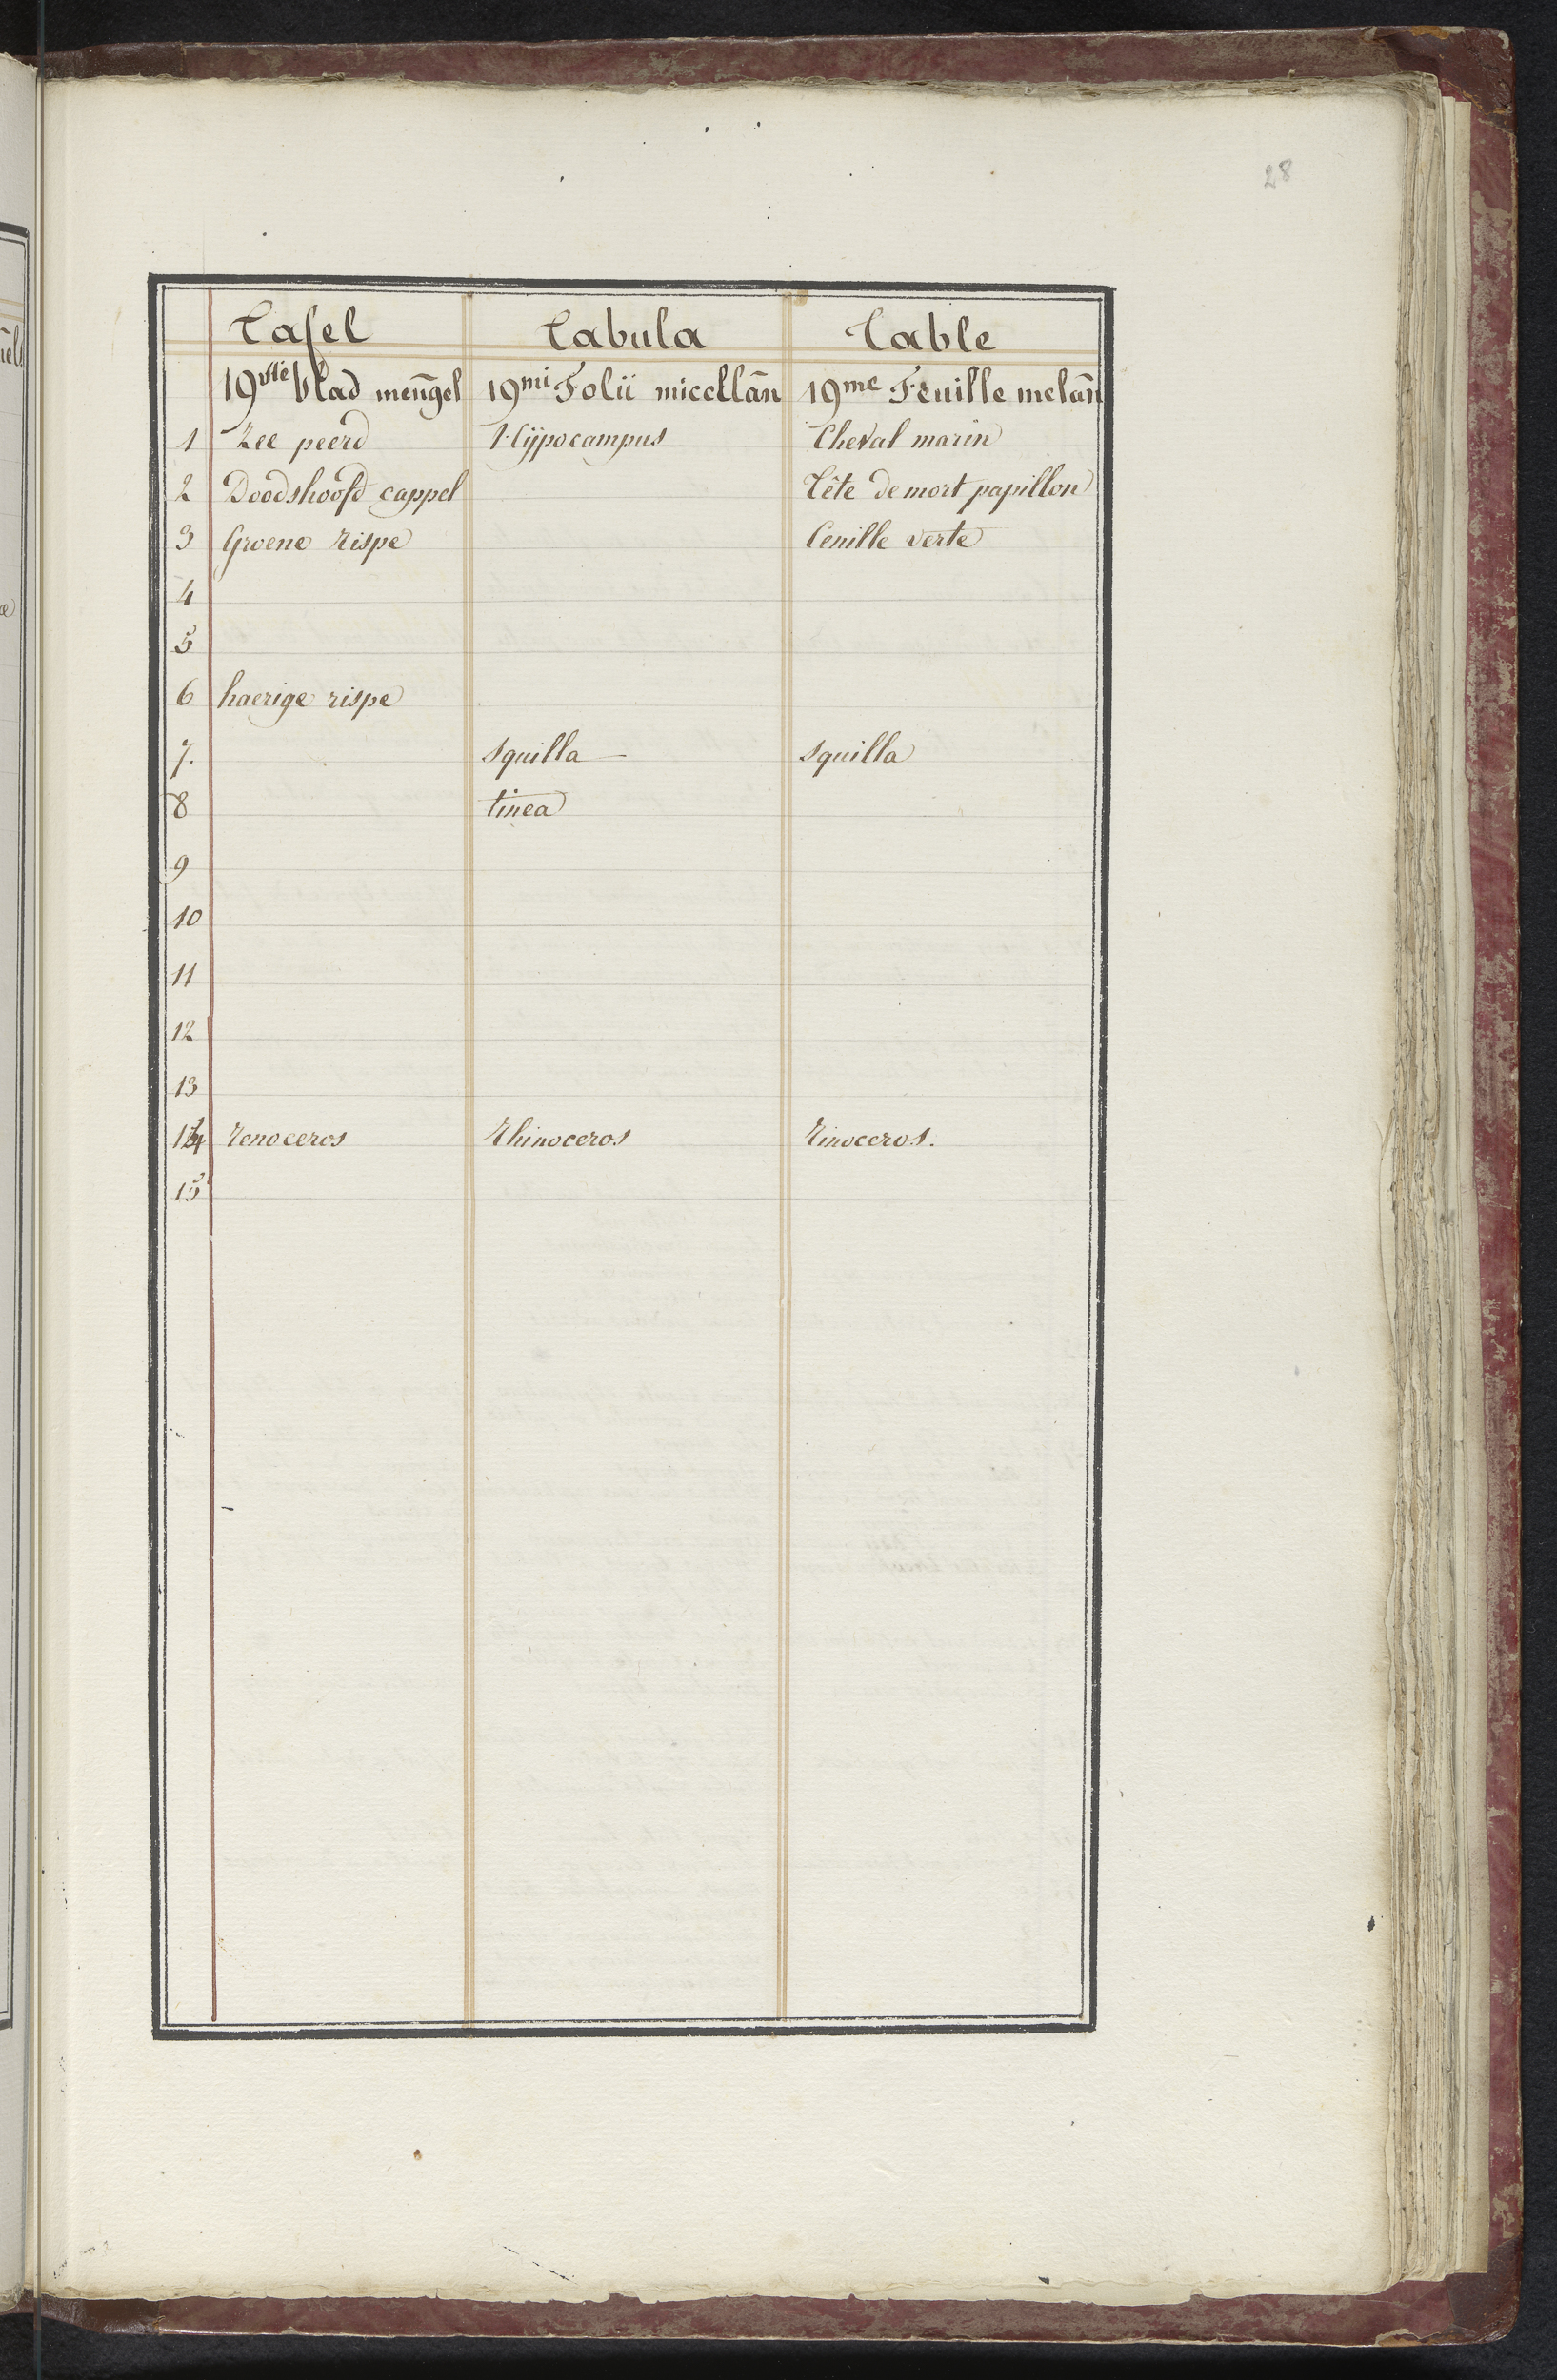 28
Tafel Tabula Table
19ste blad meñgel 19mi Folii micellãn 19me Feuille melãn
1 Zee peerd Hÿpocampus Cheval marin
2 Doodshoofd cappel Tête de mort papillon
3 Groene rispe Cenille verte
4
5
6 haerige rispe
7. squilla squilla
8 tinea
9
10
11
12
13
14 renoceros Rhinoceros rinoceros.
15